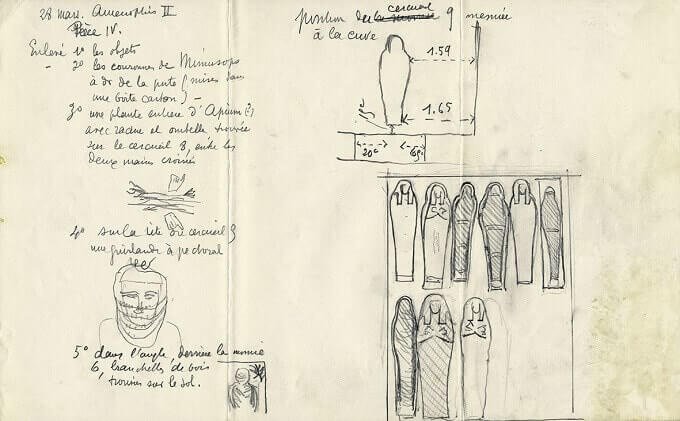 28 mars. Amenophis II
Pièce IV.
Enlevé 1º les objets
- 2º les couronnes de Mimusops
à dr de la porte (mises dans
une boîte carton) -
3º une plante entière d'Apium (?)
avec racine et ombelle, trouvée
sur le cercueil 8, entre les
deux mains croisées
4º sur la tête du cercueil 9
une guirlande à pectoral
5º dans l'angle, derrière la momie
6, branchelles de bois
trouvées sur le sol.
position du cercueil 9 momie
à la cuve
1.59
1.65
20c